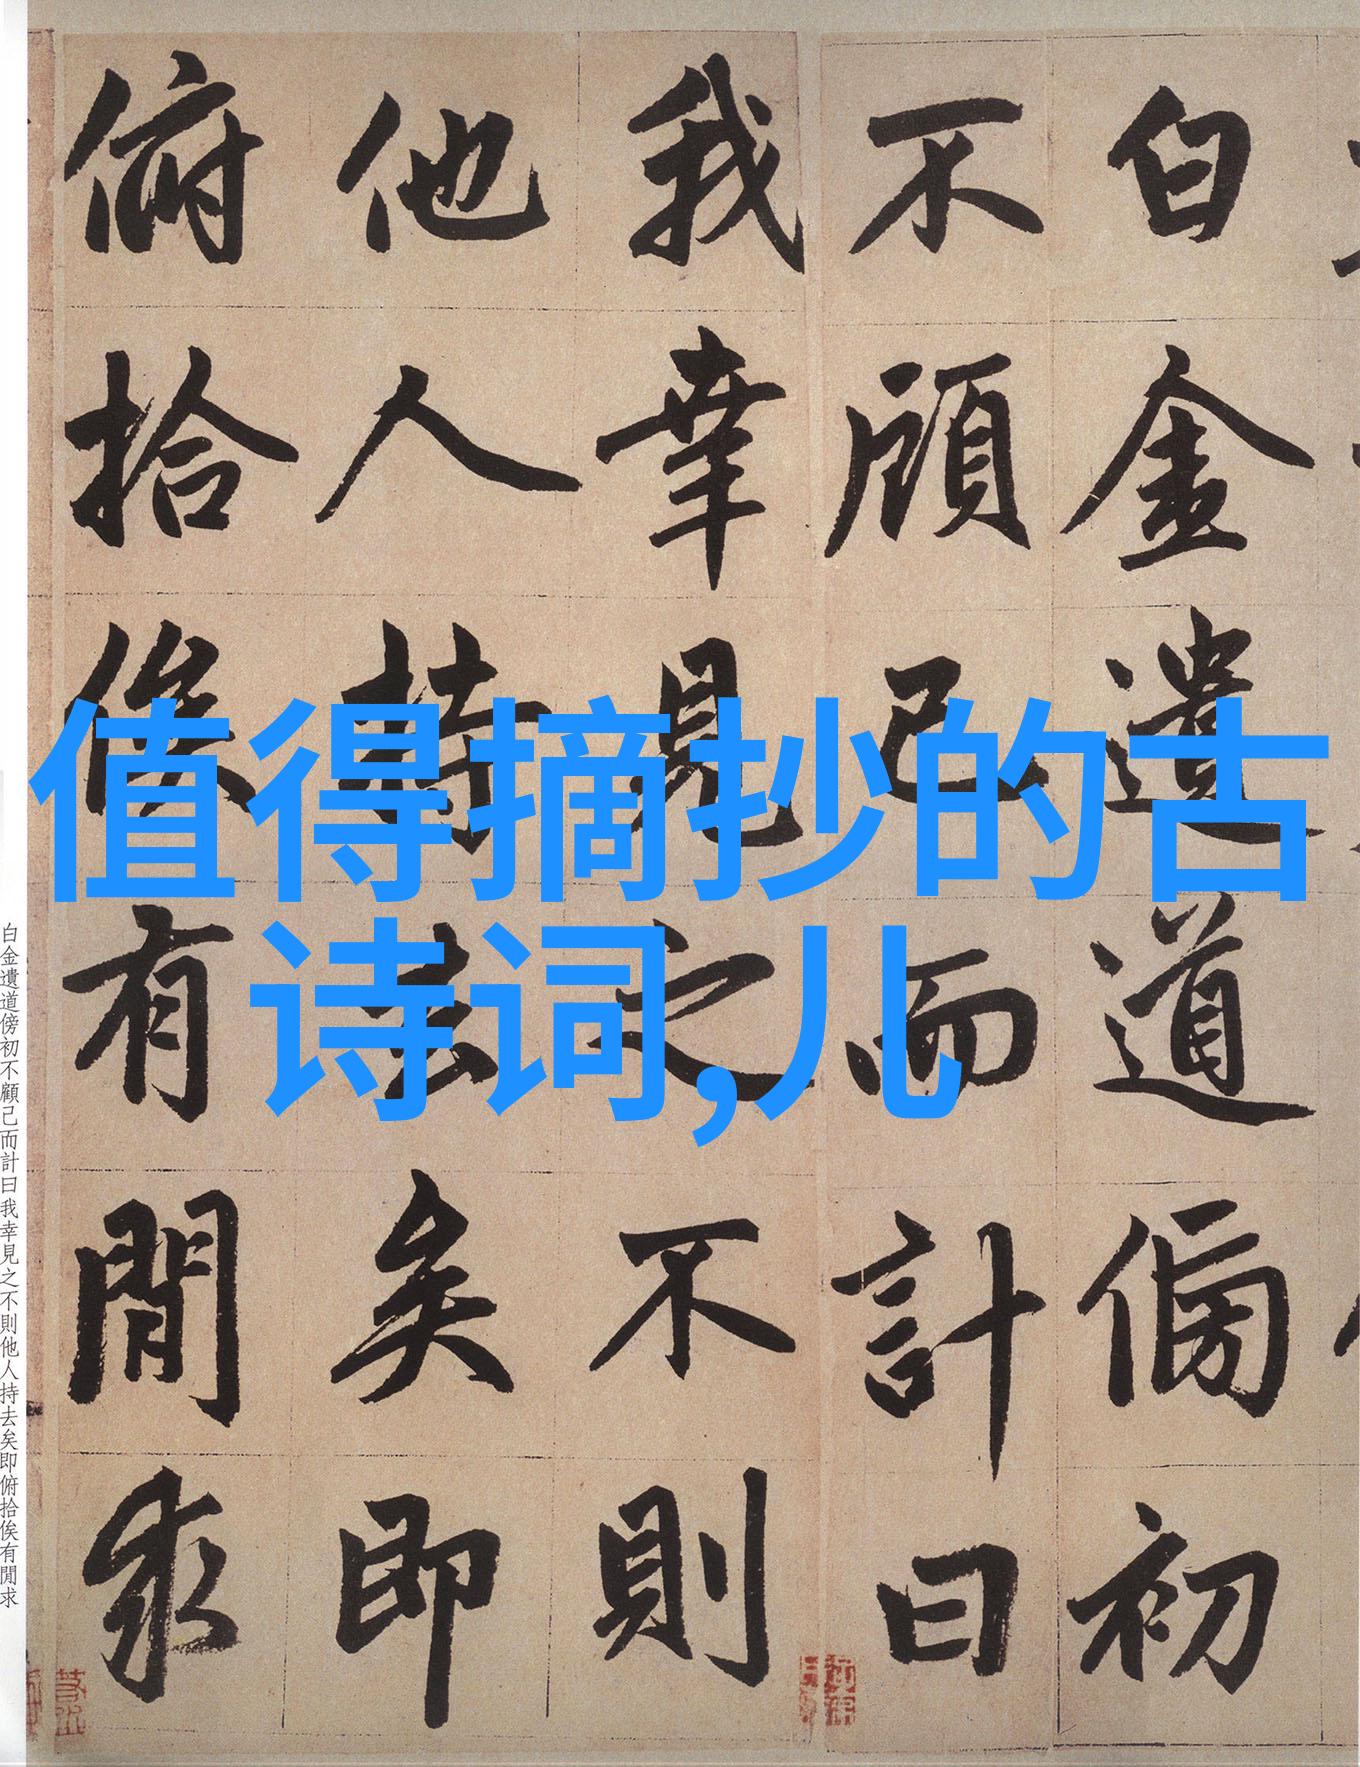 值得摘抄的古
诗词,儿
白金遺道傍初
不顧己而計曰
我幸見之不則
他人持去矣即
俯拾俟有閒求
白金遺道傍初不顧己而計曰我幸見之不則他人持去矣即俯拾俟有閒求